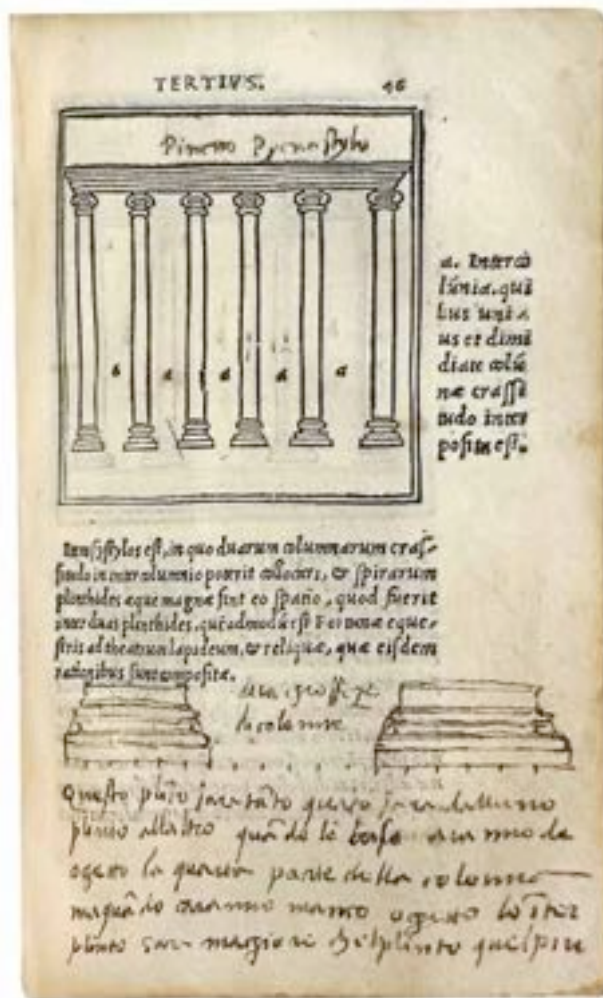 TERTIVS. 46
Pineno Pycnostylo
a. Intercō
lūnia. qui
bus uni⸗
us et dimi
diate colū
næ craſſi
tudo inter
poſita eſt.
a a a a a
Item ſyſtylos eſt, in quo duarum columnarum craſ⸗
ſitudo in intercolumnio poterit collocari, & ſpirarum
plinthides æque magnæ ſint eo ſpatio, quod fuerit
inter duas plinthides, quēadmodū eſt Fortunæ eque⸗
ſtris ad theatrum lapideum, & reliquæ, quæ eiſdem
rationibus ſunt compoſitæ.
groſſeze
di colonne
Queſto ſara tāto quāto ſara dalluno
plinto allaltro quādo le baſe arāno de
ogetto la quarta parte della colonna
ma quādo arāno manco ogetto lo īter
plinto sara magiore del plinto